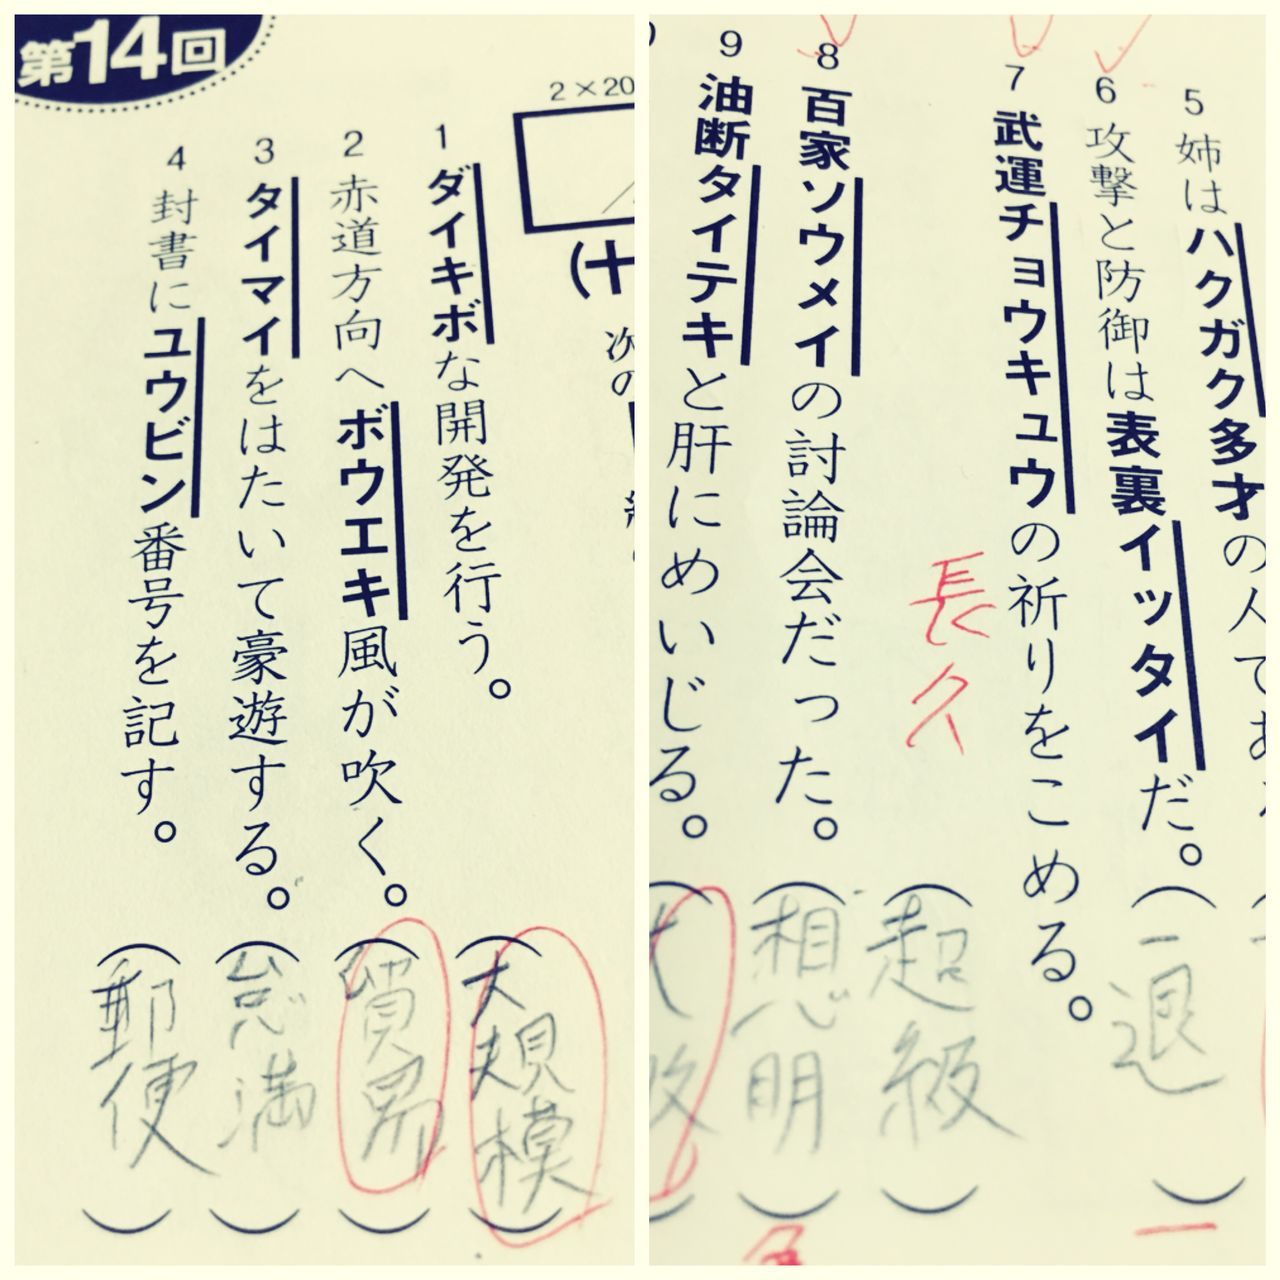 第14回
2×20
(十
次の
1 ダイキボな開発を行う。
(大規模)
2 赤道方向へボウエキ風が吹く。
(貿易)
3 タイマイをはたいて豪遊する。
(怠満)
4 封書にユウビン番号を記す。
(郵便)
5 姉はハクガク多才の人であ
6 攻撃と防御は表裏イッタイだ。
(一退)
7 武運チョウキュウの祈りをこめる。
(超級)
長久
8 百家ソウメイの討論会だった。
(想明)
9 油断タイテキと肝にめいじる。